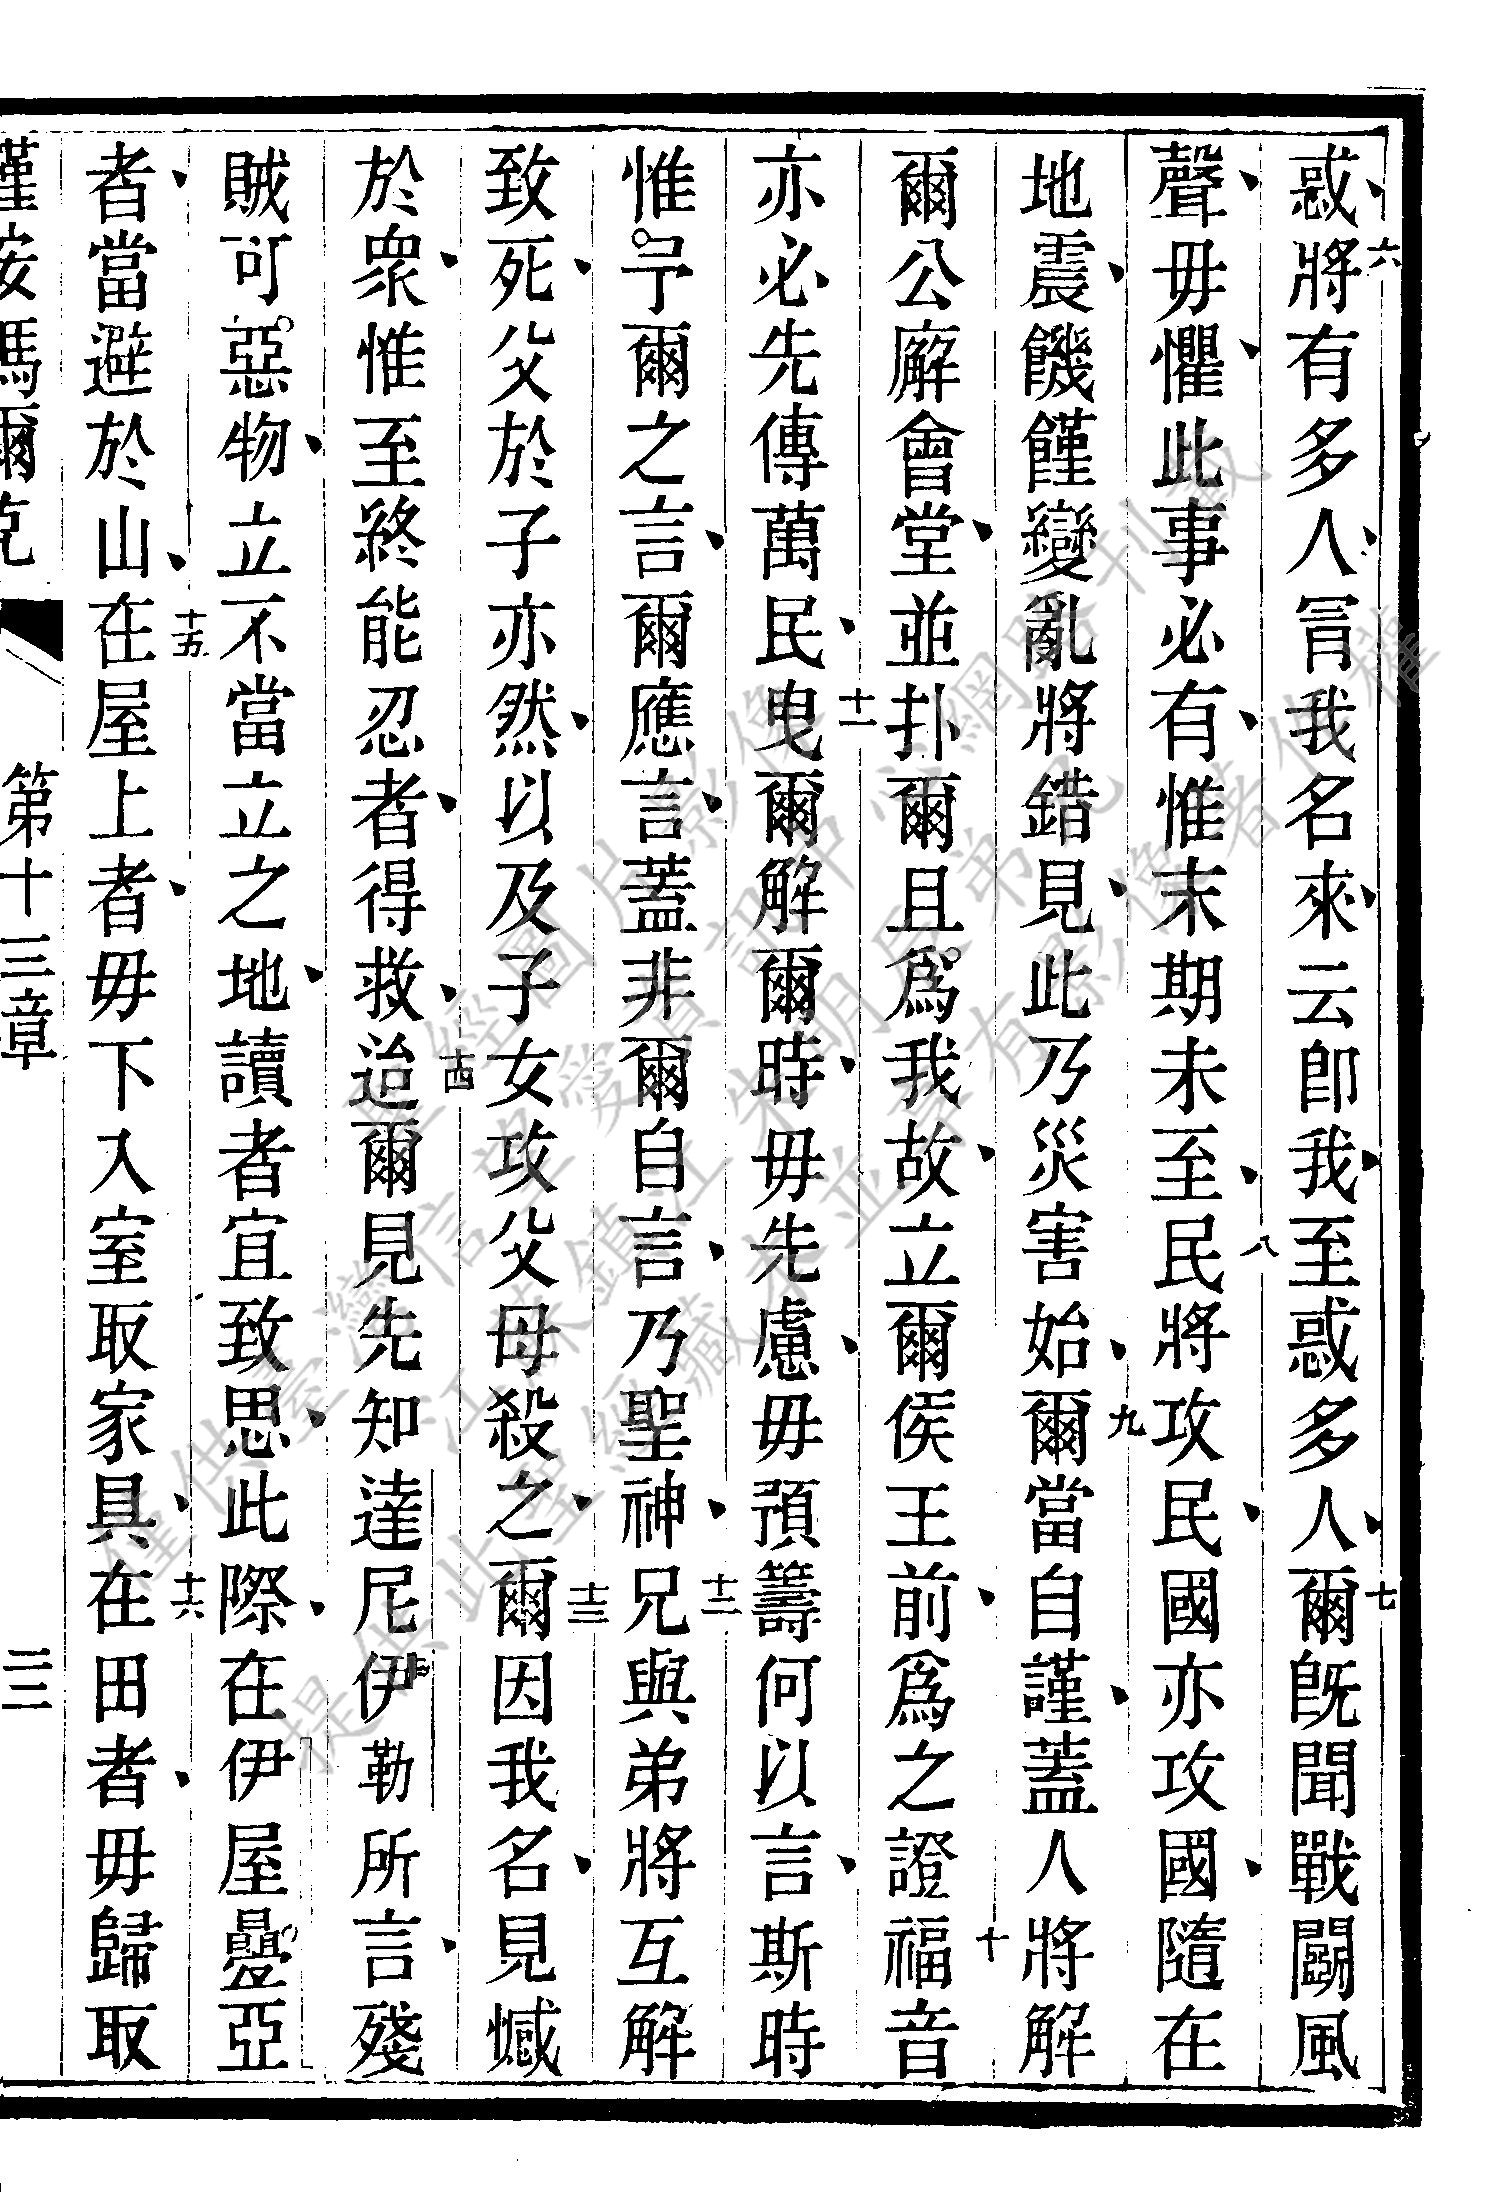 惑六將有多人冒我名來云卽我至惑多人七爾旣聞戰鬭風
聲毋懼此事必有惟末期未至八民將攻民國亦攻國隨在
地震饑饉變亂將錯見此乃災害始九爾當自謹蓋人將解
爾公廨會堂並扑爾且爲我故立爾侯王前爲之證十福音
亦必先傳萬民十一曳爾解爾時毋先慮毋預籌何以言斯時
惟予爾之言爾應言蓋非爾自言乃聖神十二兄與弟將互解
致死父於子亦然以及子女攻父母殺之十三爾因我名見憾
於衆惟至終能忍者得救十四迨爾見先知達尼伊勒所言殘
賊可惡物立不當立之地讀者宜致思此際在伊屋疊亞
者當避於山十五在屋上者毋下入室取家具十六在田者毋歸取
第十三章
三二